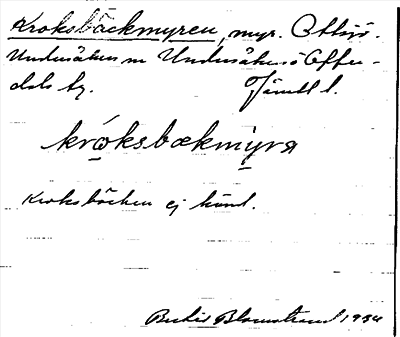 Kroksbäckmyren, myr. Ottsjö.
Undersåkers sn Undersåkers o Offer-
dals tg. Jämtl l.
króksbækmyra
Kroksbäcken ej känd.
Blomstrand 1934